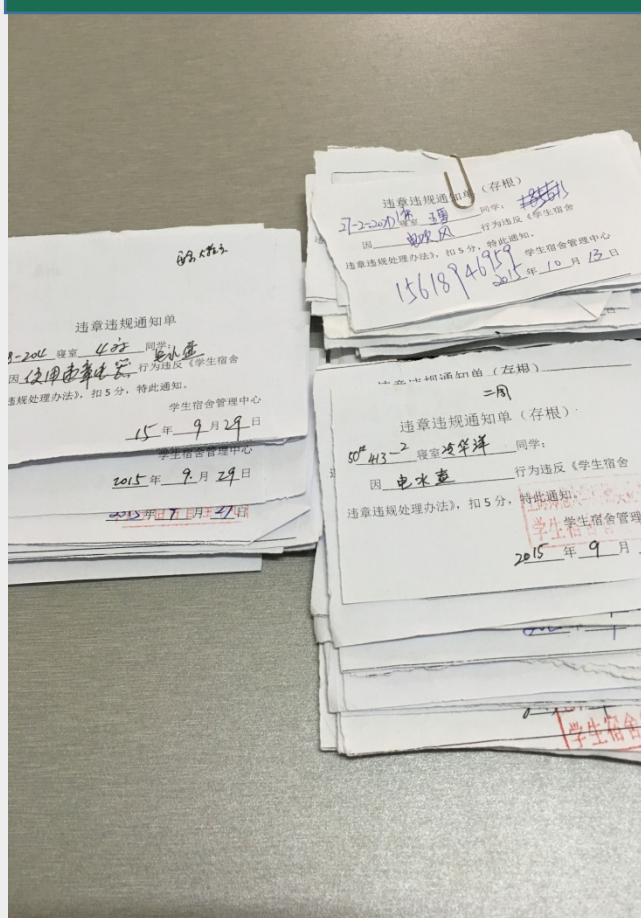 违章违规通知单
8-204 寝室 4 同学:
电水壶
因 使用违章电器 行为违反《学生宿舍
违规处理办法》,扣5分,特此通知。
学生宿舍管理中心
15 年 9 月 29 日
学生宿舍管理中心
2015 年 9. 月 29 日
2015 年 9 月 29 日
违章违规通知单(存根)
27-2-204 寝室 同学:
因 电吹风 行为违反《学生宿舍
违章违规处理办法》,扣5分,特此通知。
学生宿舍管理中心
15618946959
2015 年 10 月 13 日
违章违规通知单(存根)
二周
违章违规通知单(存根)
50# 413-2 寝室 同学:
因 电水壶 行为违反《学生宿舍
违章违规处理办法》,扣5分,特此通知。
学生宿舍管理
学生宿舍
2015 年 9 月
学生宿舍